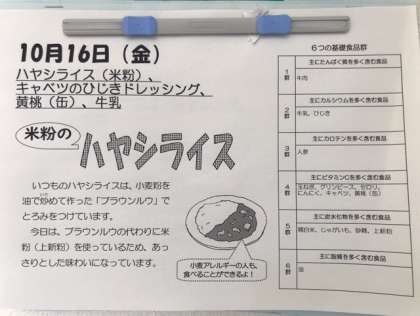 10月16日（金）
ハヤシライス（米粉）、
キャベツのひじきドレッシング、
黄桃（缶）、牛乳
米粉の
ハヤシライス
いつものハヤシライスは、小麦粉を
油で炒めて作った「ブラウンルウ」で
とろみをつけています。
今日は、ブラウンルウの代わりに米
粉（上新粉）を使っているため、あっ
さりとした味わいになっています。
小麦アレルギーの人も、
食べることができるよ！
6つの基礎食品群
1群
主にたんぱく質を多く含む食品
牛肉
2群
主にカルシウムを多く含む食品
牛乳、ひじき
3群
主にカロテンを多く含む食品
人参
4群
主にビタミンCを多く含む食品
玉ねぎ、グリンピース、セロリ、
にんにく、キャベツ、黄桃（缶）
5群
主に炭水化物を多く含む食品
精白米、じゃがいも、砂糖、上新粉
6群
主に脂質を多く含む食品
油